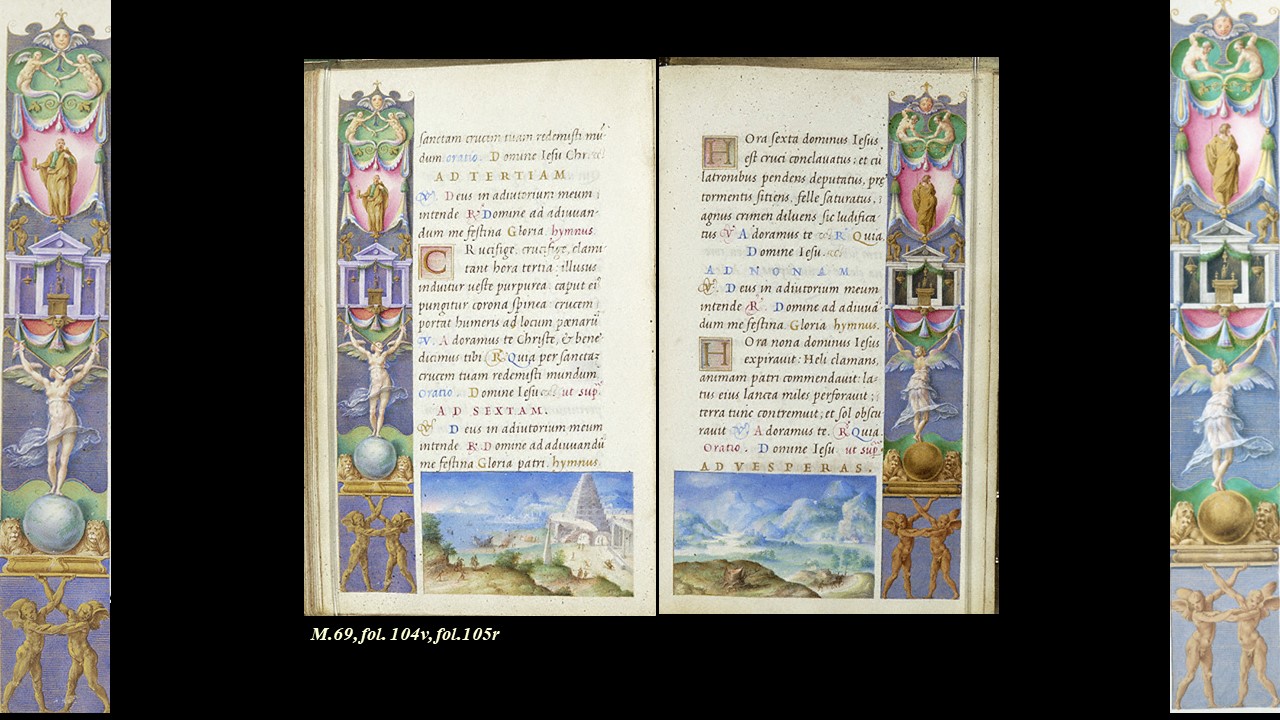 sanctam crucem tuam redemisti mū-
dum oratio. Domine Iesu Chr
AD TERTIAM
V. Deus in adiutorium meum
intende R. Domine ad adiuuan-
dum me festina Gloria hymnus.
CRucifige, crucifige, clami
tant hora tertia: illusus
induitur ueste purpurea: caput eiꝰ
pungitur corona spinea: crucem
portat humeris ad locum pœnarū
V. Adoramus te Christe, & bene-
dicimus tibi R. Quia per sanctaz
crucem tuam redemisti mundum.
Oratio. Domine Iesu ut sup.
AD SEXTAM.
V. Deus in adiutorium meum
intende R. Domine ad adiuuandū
me festina Gloria patri. hymnus.
HOra sexta dominus Iesus
est cruci conclauatus: et cū
latronibus pendens deputatus, prę
tormentis sitiens, felle saturatus,
agnus crimen diluens sic ludifica
tus V. Adoramus te R. Quia
Domine Iesu.
AD NONAM
V. Deus in adiutorium meum
intende R. Domine ad adiuuā-
dum me festina. Gloria hymnus.
HOra nona dominus Iesus
expirauit: Heli clamans,
animam patri commendauit: la-
tus eius lancea miles perforauit;
terra tunc contremuit, et sol obscu
rauit V. Adoramus te. R. Quia
Oratio. Domine Iesu ut sup.
AD VESPERAS.
M.69, fol. 104v, fol.105r